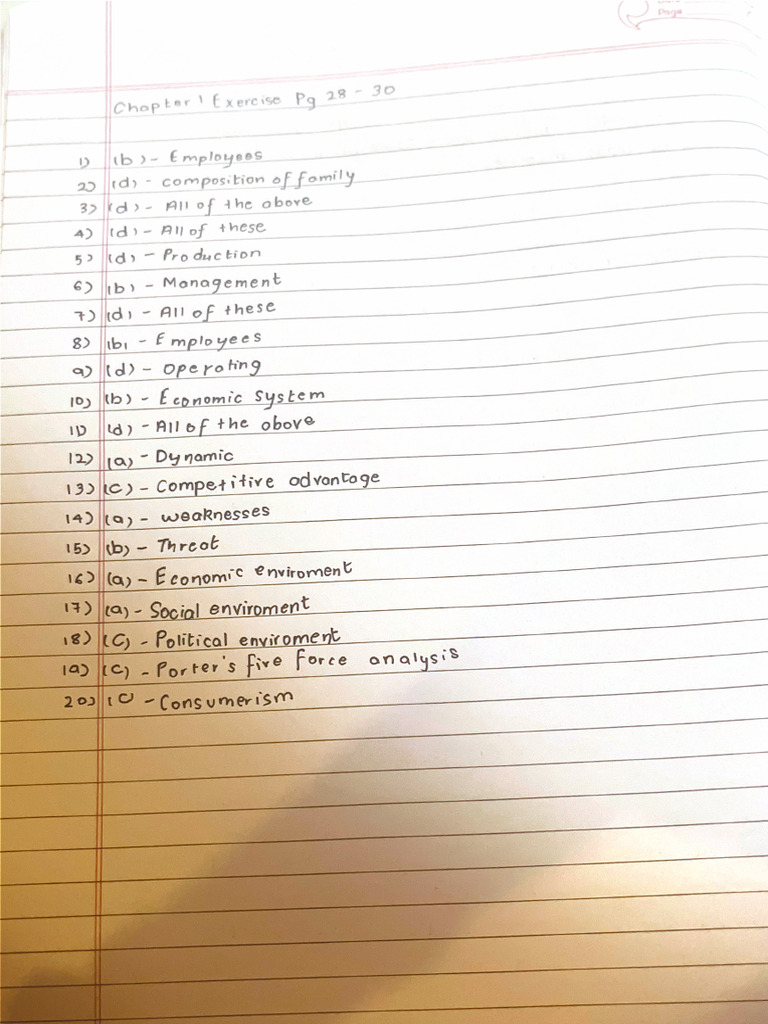 Page
Chapter 1 Exercise Pg 28 - 30
1) (b) - Employees
2) (d) - composition of family
3) (d) - All of the above
4) (d) - All of these
5) (d) - Production
6) (b) - Management
7) (d) - All of these
8) (b) - Employees
9) (d) - Operating
10) (b) - Economic System
11) (d) - All of the above
12) (a) - Dynamic
13) (c) - Competitive advantage
14) (a) - weaknesses
15) (b) - Threat
16) (a) - Economic enviroment
17) (a) - Social enviroment
18) (C) - Political enviroment
19) (c) - Porter's five force analysis
20) (C) - Consumerism